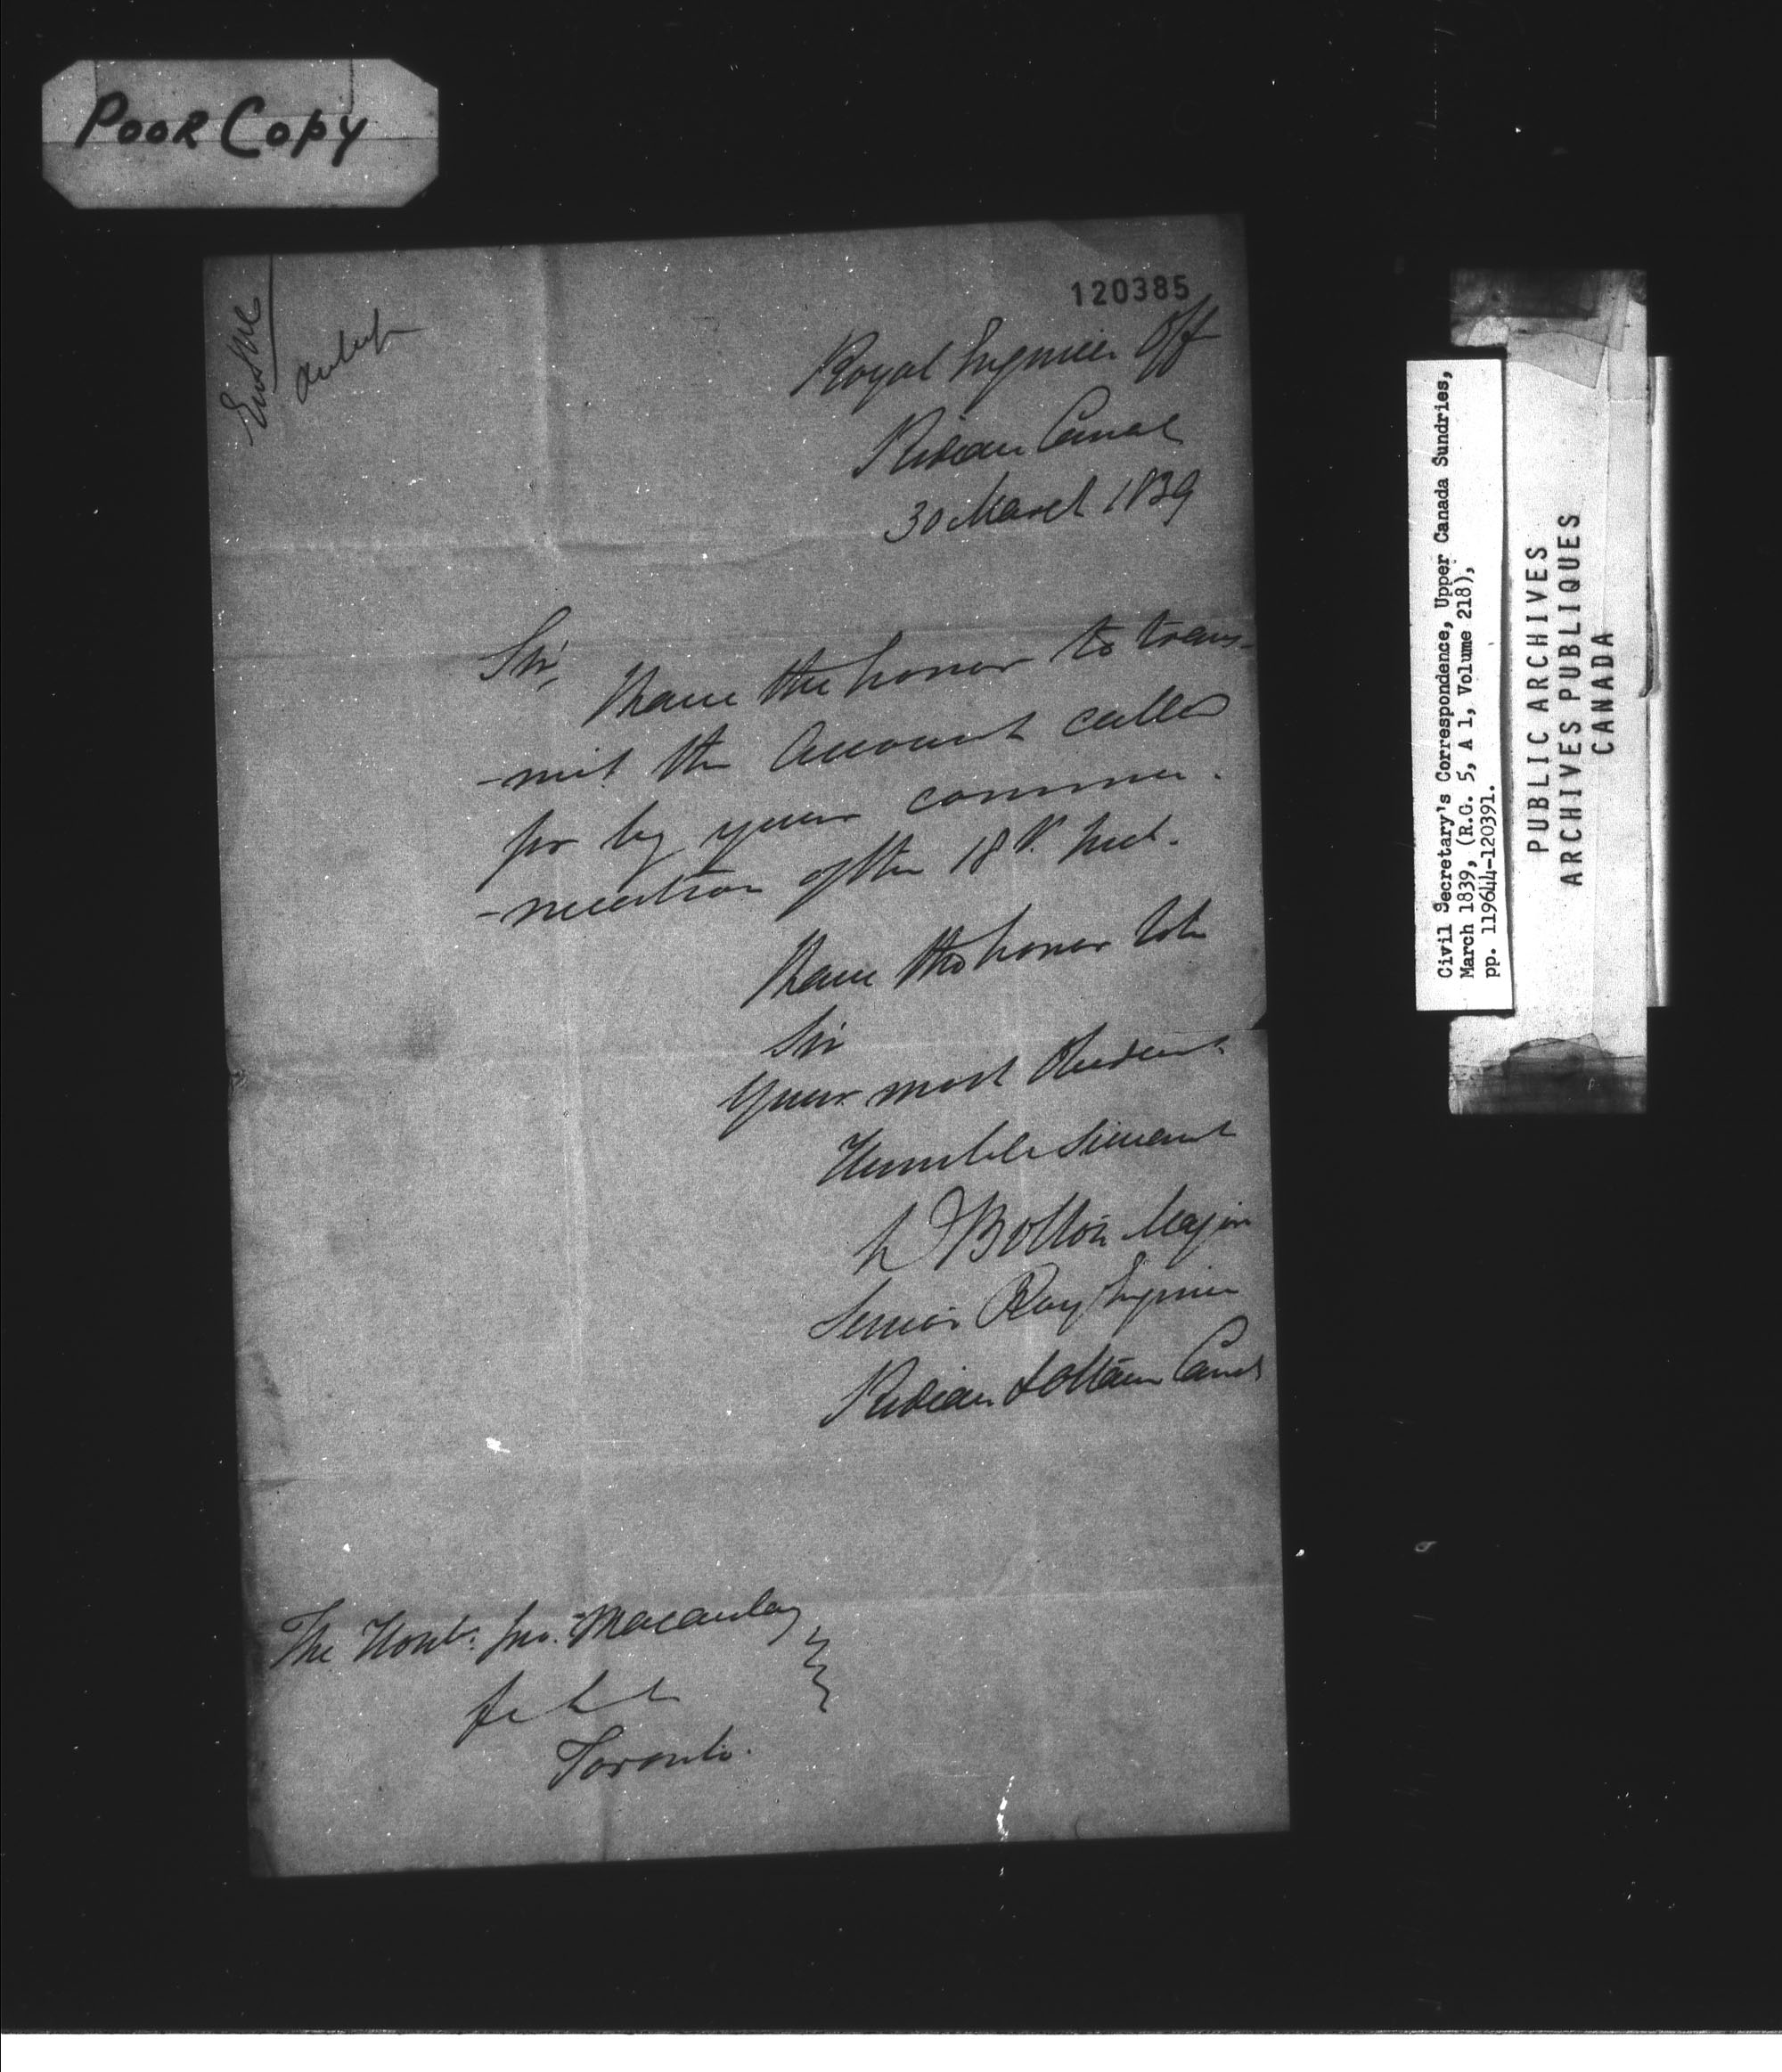 Poor Copy
120385
Royal Engineer Off
Rideau Canal
30 March 1839
Sir,
I have the honor to trans-
-mit the Account called
for by your commu-
-nication of the 18th. Inst.
I have the honor to be
Sir
Your most Obedient
Humble Servant
D Bolton Major
Senior Roy Engineer
Rideau & Ottawa Canal
The Honble. Jno. Macaulay
&c &c &c
Toronto.
Civil Secretary's Correspondence, Upper Canada Sundries,
March 1839, (R.G. 5, A 1, Volume 218),
pp. 119644-120391.
PUBLIC ARCHIVES
ARCHIVES PUBLIQUES
CANADA